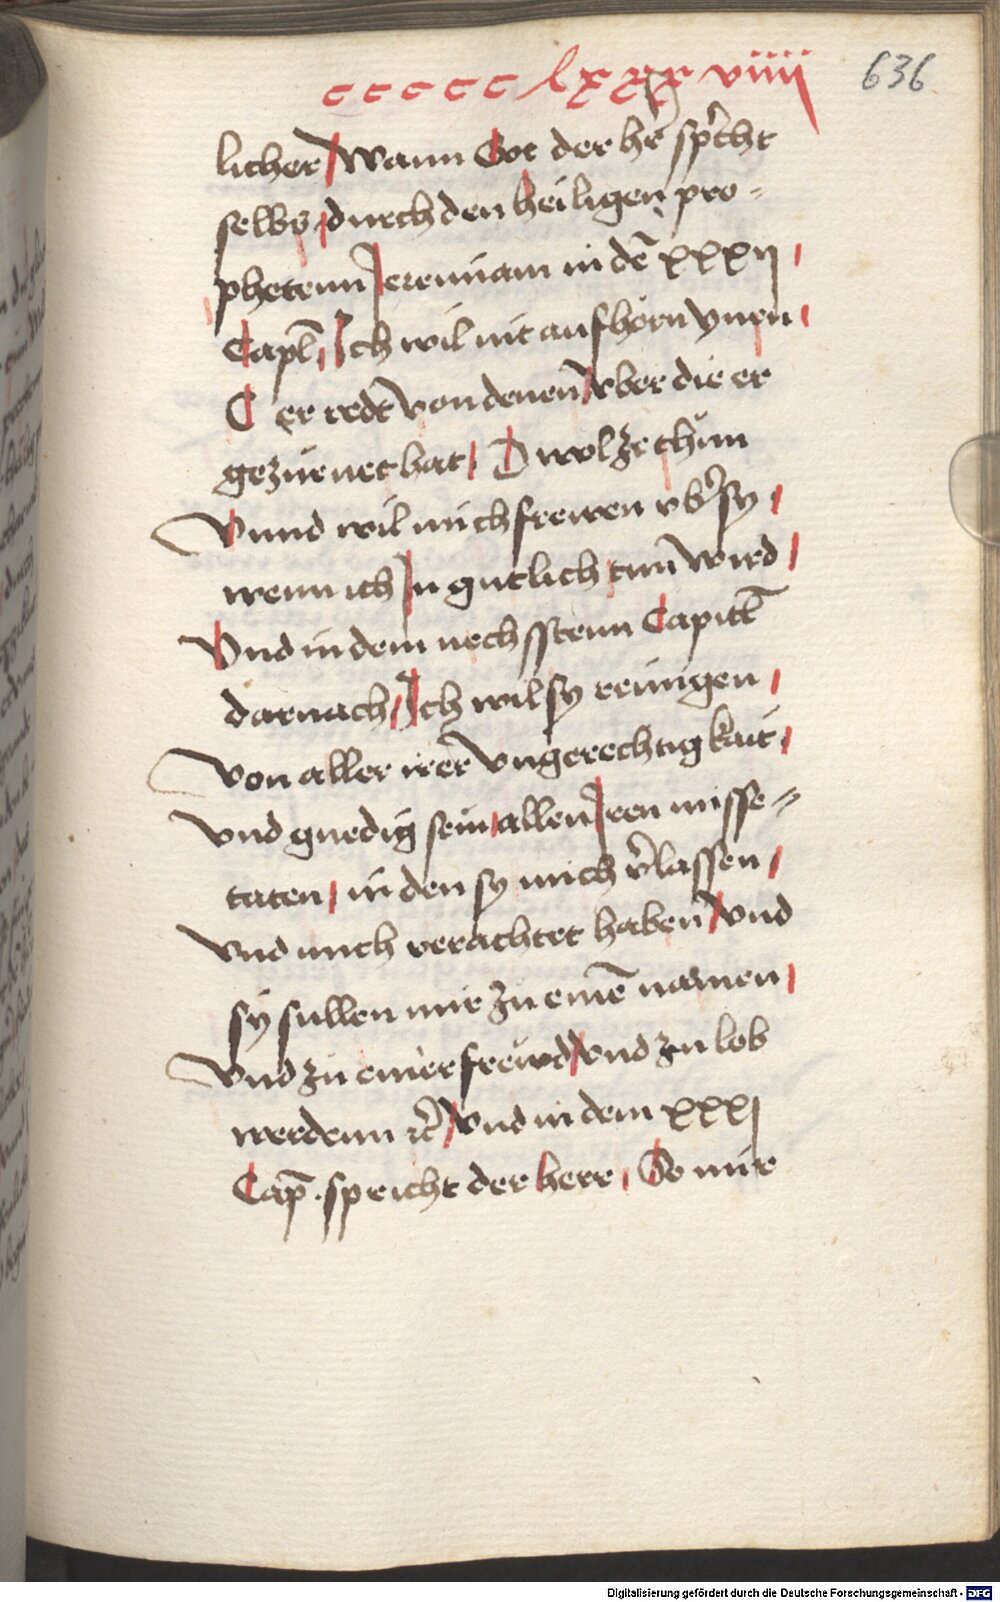 ccccc lxxx viiii 636
licher / wann Got der her̄ spricht
selbs / durch den heiligen pro-
phetenn Jeremiam in dē xxxij /
Capl̄ / Ich wil nit aufhörn ynen /
C er redt von denen / vber die er
gezürnet hat / D wol ze thůn
Vnnd wil mich frewen vb̓ sy /
wenn ich In gutlich tun̄ wird /
Vnd in dem nechsstenn Capitl̄
darnach / Ich wil sy reinigen /
von aller irer vngerechtigkait /
vnd gnedig sein / allen Iren misse-
taten / in den sy mich v̓lassen /
vnd mich verachtet haben / vnd
sy sullen mir zu einē namen /
vnd zu einer frewd / vnd zu lob
werdenn rc̄ / vnd in dem xxxj
Cap̄. spricht der herr / So mir
Digitalisierung gefördert durch die Deutsche Forschungsgemeinschaft - DFG